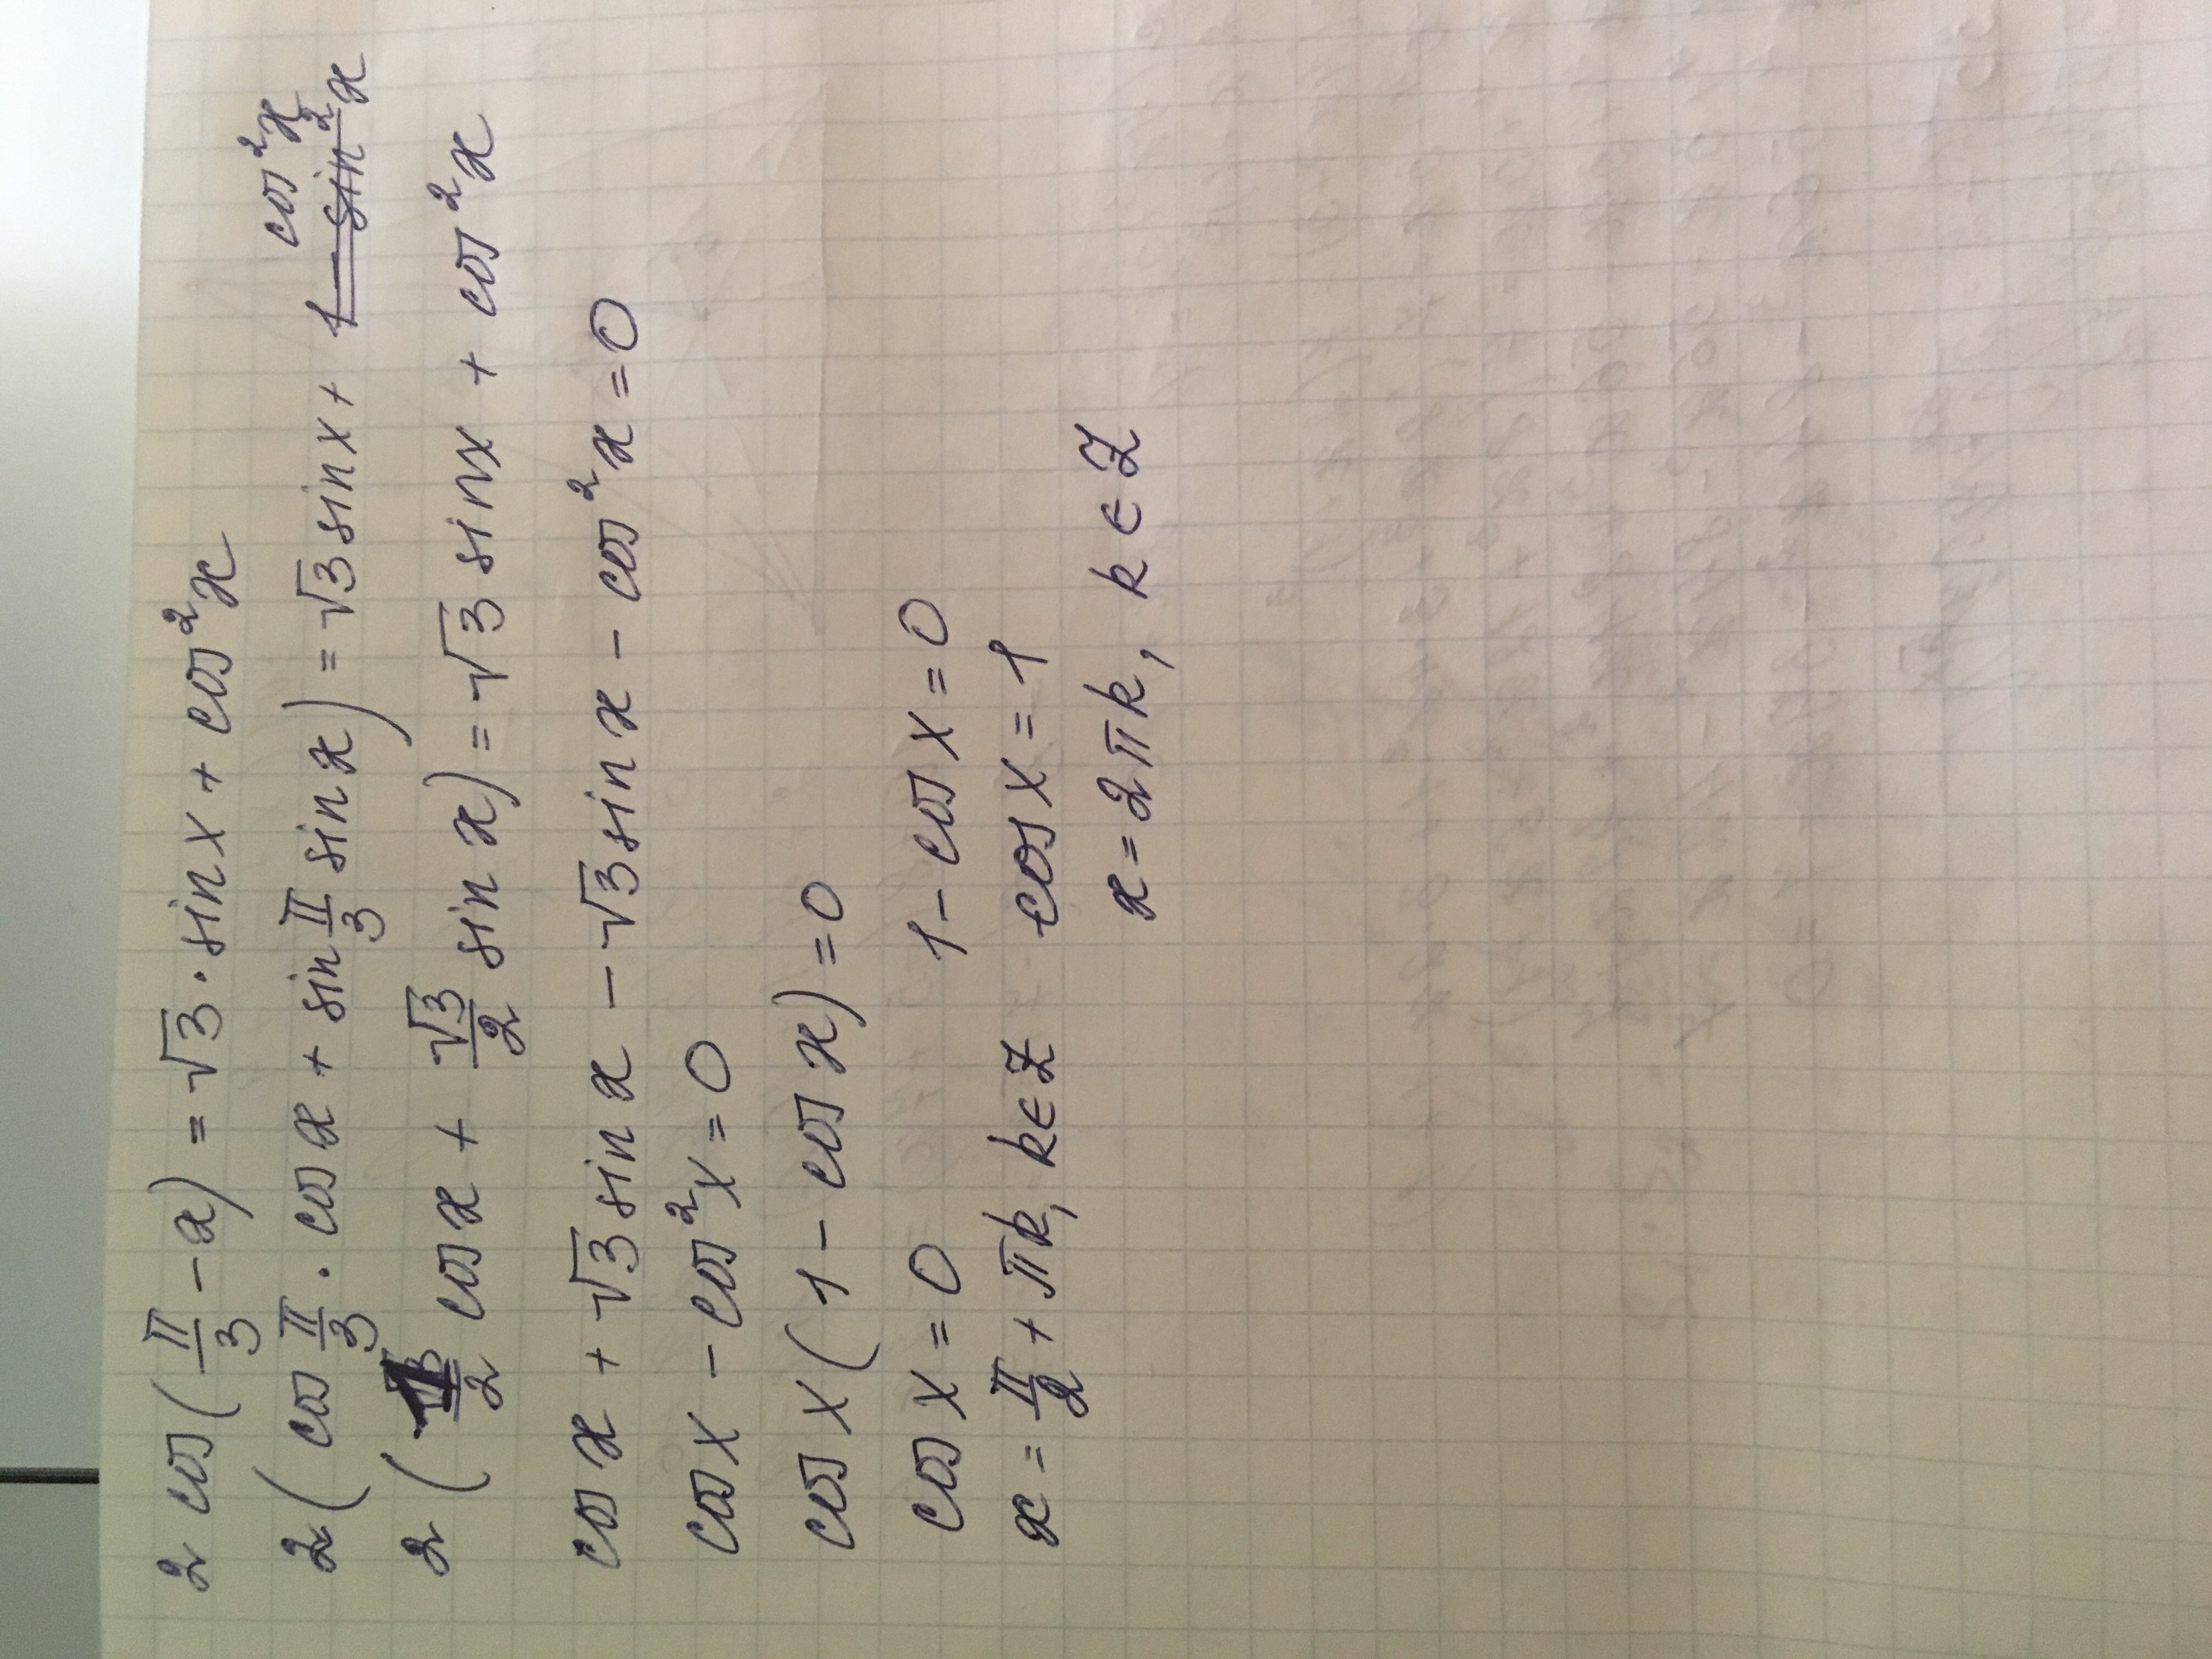 2 cos(π/3 - x) = √3 · sin x + cos²x
cos²x
2(cos π/3 · cos x + sin π/3 sin x) = √3 sin x + 1 - sin²x
2(1/2 cos x + √3/2 sin x) = √3 sin x + cos²x
cos x + √3 sin x - √3 sin x - cos²x = 0
cos x - cos²x = 0
cos x (1 - cos x) = 0
cos x = 0 1 - cos x = 0
x = π/2 + πk, k ∈ Z cos x = 1
x = 2πk, k ∈ Z